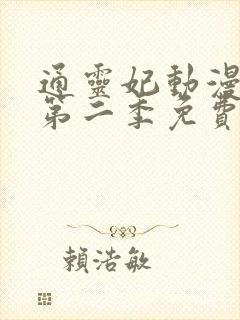 通靈妃動漫
第二季免費
賴浩敏